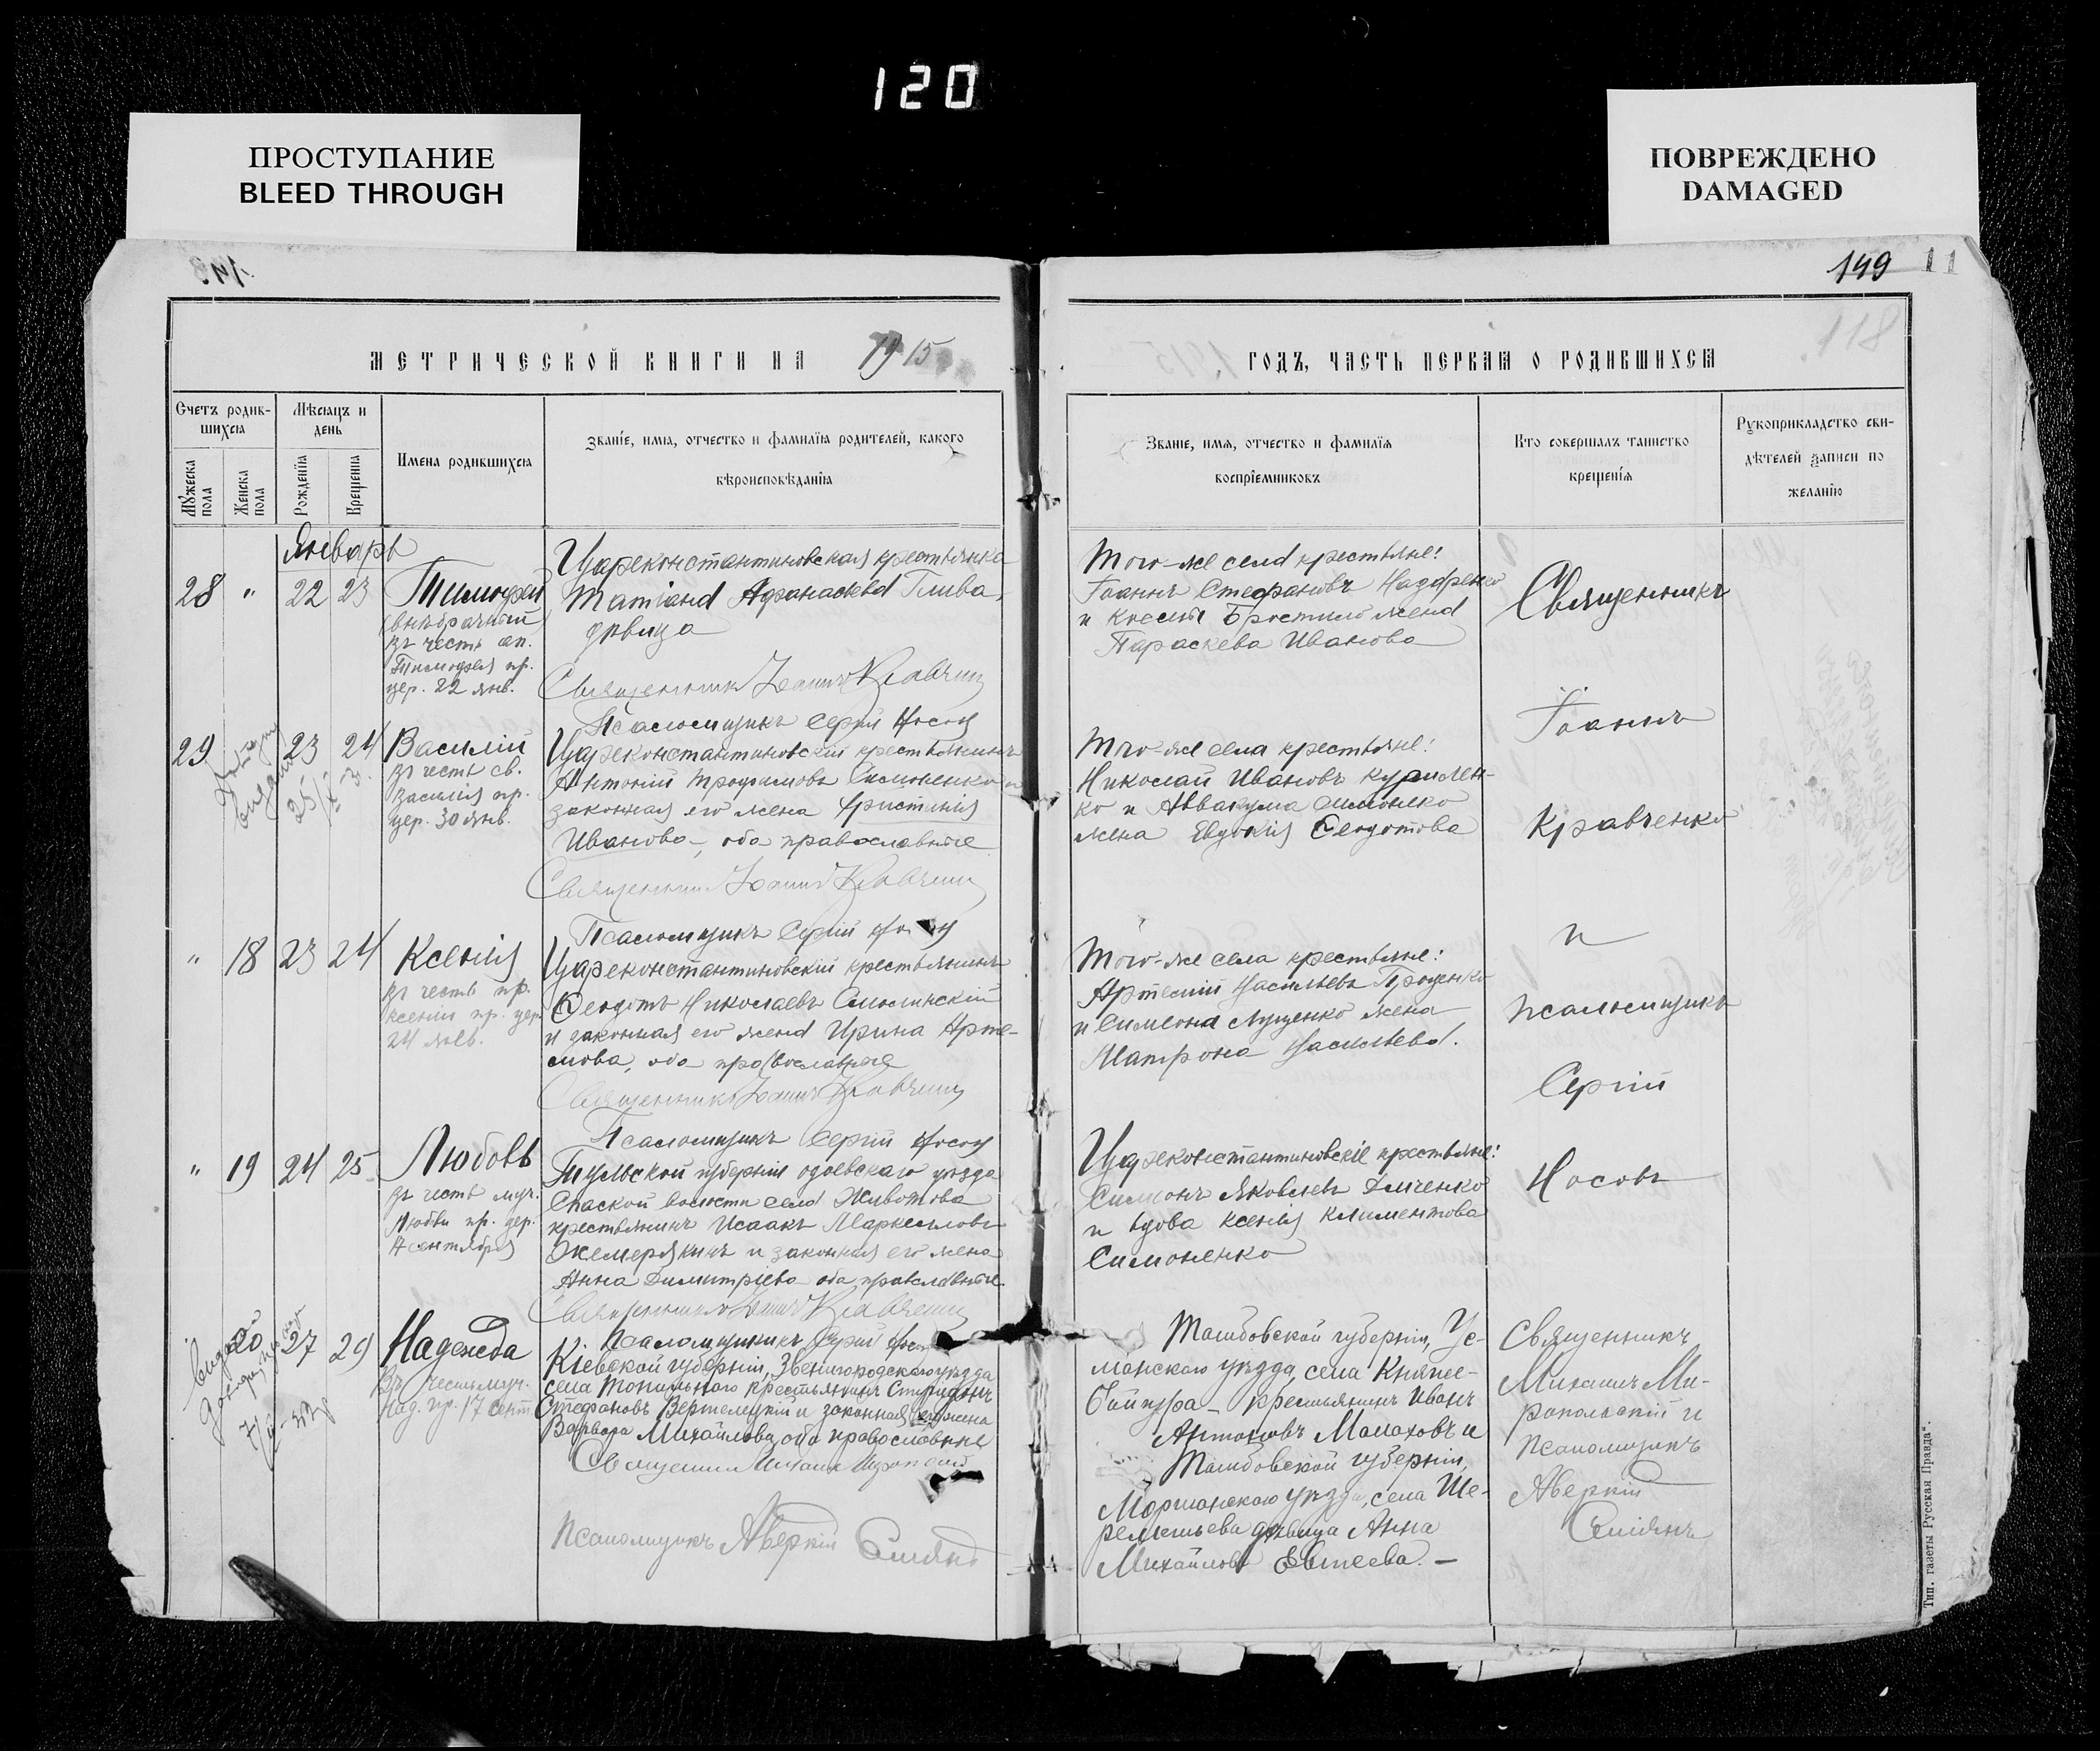 120
ПРОСТУПАНИЕ
BLEED THROUGH
ПОВРЕЖДЕНО
DAMAGED
149 11
118
МЕТРИЧЕСКОЙ КНИГИ НА 1915
ГОДЪ, ЧАСТЬ ПЕРВАЯ О РОДИВШИХСЯ
Счетъ родив-
шихся
Мѣсяцъ и
день
Мужеска
пола
Женска
пола
Рожденія
Крещенія
Имена родившихся
Званіе, имя, отчество и фамилія родителей, какого
вѣроисповѣданія
Званіе, имя, отчество и фамилія
воспріемниковъ
Кто совершалъ таинство
крещенія
Рукоприкладство сви-
дѣтелей записи по
желанію
Январь
28 " 22 23
Тимофей
(внѣбрачный)
въ честь ап.
Тимофея пр.
цер. 22 янв.
Цареконстантиновская крестьянка
Татіана Афанасьева Глива,
дѣвица
Священникъ Іоаннъ Кравченко
Псаломщикъ Сергій Носовъ
Того-же села крестьяне:
Іоаннъ Стефановъ Назаренко
и жена
Параскева Иванова
29 23 24
25
Василій
въ честь св.
Василія пр.
цер. 30 янв.
Цареконстантиновскій крестьянинъ
Антоній Трофимовъ Симоненко и
законная его жена Христинія
Иванова, оба православные
Священникъ Іоаннъ Кравченко
Псаломщикъ Сергій Носовъ
Того-же села крестьяне:
Николай Ивановъ Курилен-
ко и Аввакума Симоненко
жена Евдокія Ѳеодотова
" 18 23 24
Ксенія
въ честь пр.
Ксеніи пр. цер.
24 янв.
Цареконстантиновскій крестьянинъ
Ѳеодотъ Николаевъ Смолинскій
и законная его жена Ирина Арте-
мова, оба православные
Священникъ Іоаннъ Кравченко
Псаломщикъ Сергій Носовъ
Того-же села крестьяне:
Артемій Васильевъ Проценко
и Симеона Луценко жена
Матрона Васильева.
" 19 24 25
Любовь
въ честь муч.
Любви пр. цер.
17 сентября
Тульской губерніи Одоевскаго уѣзда
Спаской волости села Животова
крестьянинъ Исаакъ Маркелловъ
Жемерякинъ и законная его жена
Анна Димитріева оба православные
Священникъ Іоаннъ Кравченко
Псаломщикъ Сергій Носовъ
Цареконстантиновскіе крестьяне:
Симеонъ Яковлевъ
и вдова Ксенія Климентова
Симоненко
Священникъ
Іоаннъ
Кравченко
и
псаломщикъ
Сергій
Носовъ
20 27 29
Надежда
Въ честь муч.
Над. пр. 17 сент.
Кіевской губерніи, Звенигородскаго уѣзда
села Топильнаго крестьянинъ Спиридонъ
Стефановъ Вертелецкій и законная его жена
Варвара Михайлова, оба православные
Священникъ Михаилъ
Псаломщикъ Аверкій Симянъ
Тамбовской губерніи, Ус-
манскаго уѣзда, села Княже-
Байгора крестьянинъ Иванъ
Антоновъ Малаховъ и
Тамбовской губерніи,
Моршанскаго уѣзда, села Ше-
реметьева дѣвица Анна
Михайлова Евтеева. —
Священникъ
Михаилъ Ми-
ропольскій и
псаломщикъ
Аверкій
Симянъ
Тип. газеты „Русская Правда".